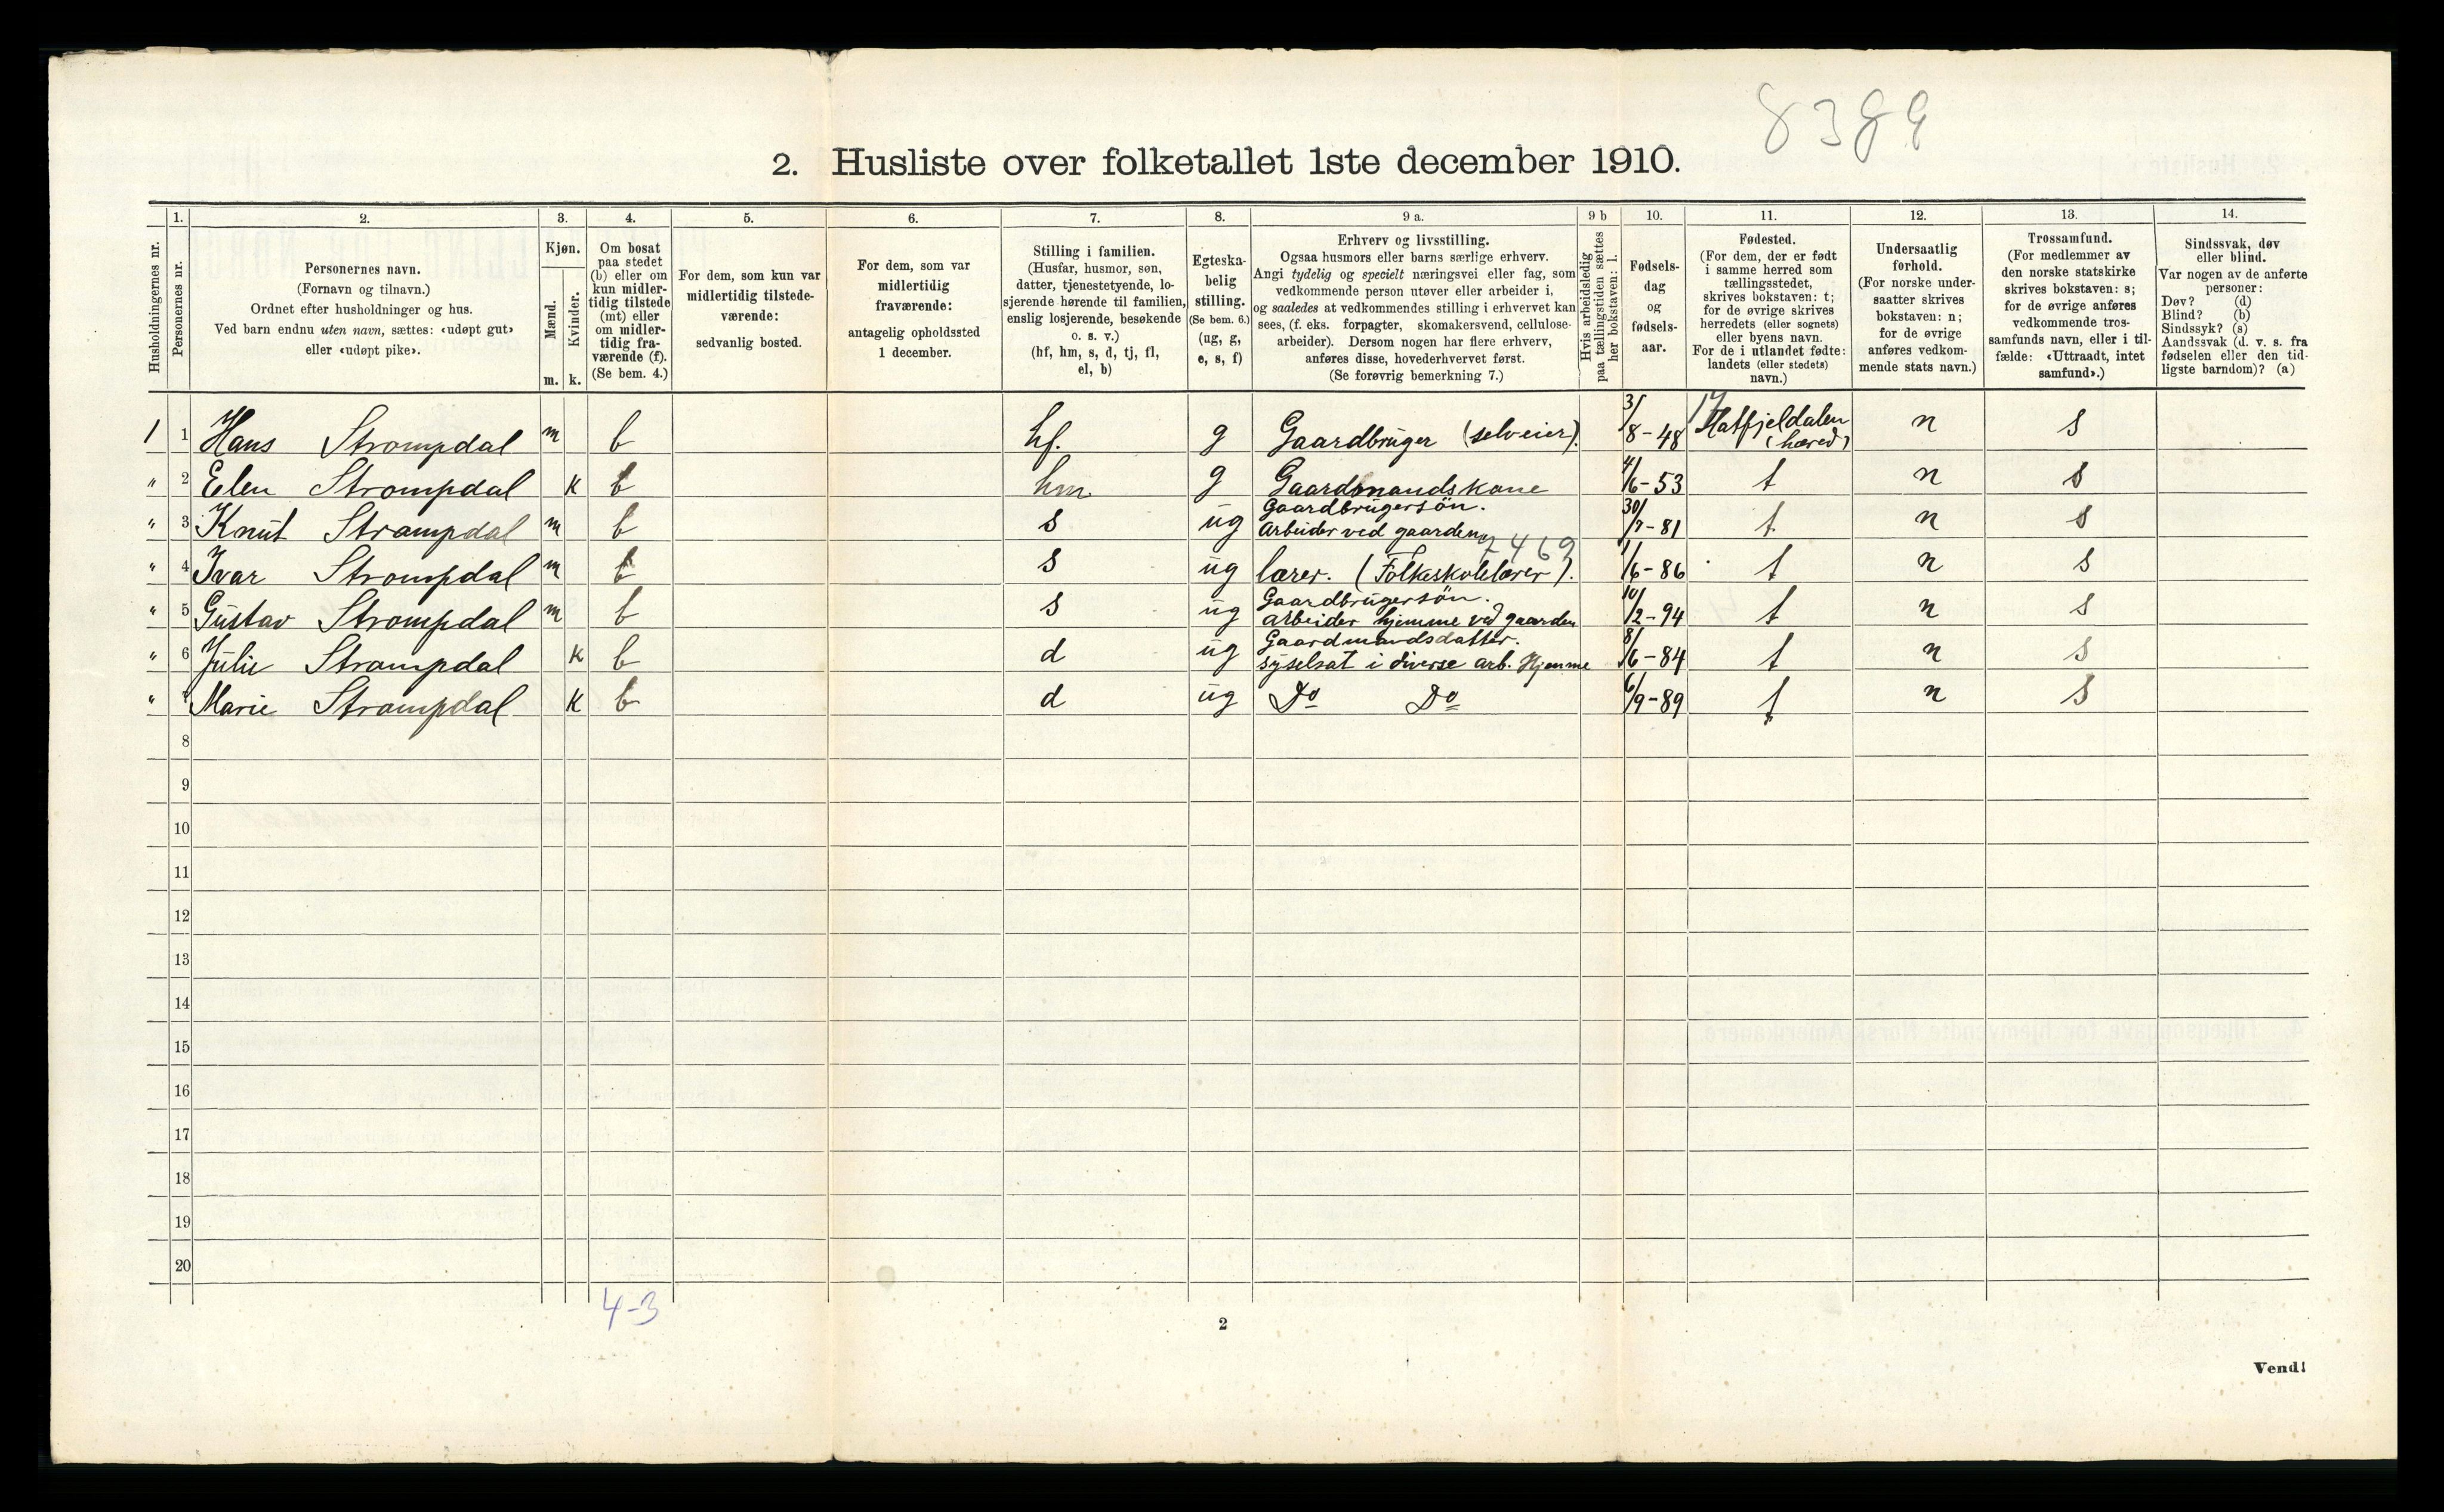 8389
2. Husliste over folketallet 1ste december 1910.
Husholdningernes nr.
1.
Personernes nr.
2.
Personernes navn.
(Fornavn og tilnavn.)
Ordnet efter husholdninger og hus.
Ved barn endnu uten navn, sættes: «udøpt gut»
eller «udøpt pike».
3.
Kjøn.
Mænd.
Kvinder.
m. k.
4.
Om bosat
paa stedet
(b) eller om
kun midler-
tidig tilstede
(mt) eller
om midler-
tidig fra-
værende (f).
(Se bem. 4.)
5.
For dem, som kun var
midlertidig tilstede-
værende:
sedvanlig bosted.
6.
For dem, som var
midlertidig
fraværende:
antagelig opholdssted
1 december.
7.
Stilling i familien.
(Husfar, husmor, søn,
datter, tjenestetyende, lo-
sjerende hørende til familien,
enslig losjerende, besøkende
o. s. v.)
(hf, hm, s, d, tj, fl,
el, b)
8.
Egteska-
belig
stilling.
(Se bem. 6.)
(ug, g,
e, s, f)
9 a.
Erhverv og livsstilling.
Ogsaa husmors eller barns særlige erhverv.
Angi tydelig og specielt næringsvei eller fag, som
vedkommende person utøver eller arbeider i,
og saaledes at vedkommendes stilling i erhvervet kan
sees, (f. eks. forpagter, skomakersvend, cellulose-
arbeider). Dersom nogen har flere erhverv,
anføres disse, hovederhvervet først.
(Se forøvrig bemerkning 7.)
9 b
Hvis arbeidsledig
paa tællingstiden sættes
her bokstaven: l.
10.
Fødsels-
dag
og
fødsels-
aar.
11.
Fødested.
(For dem, der er født
i samme herred som
tællingsstedet,
skrives bokstaven: t;
for de øvrige skrives
herredets (eller sognets)
eller byens navn.
For de i utlandet fødte:
landets (eller stedets)
navn.)
12.
Undersaatlig
forhold.
(For norske under-
saatter skrives
bokstaven: n;
for de øvrige
anføres vedkom-
mende stats navn.)
13.
Trossamfund.
(For medlemmer av
den norske statskirke
skrives bokstaven: s;
for de øvrige anføres
vedkommende tros-
samfunds navn, eller i til-
fælde: «Uttraadt, intet
samfund».)
14.
Sindssvak, døv
eller blind.
Var nogen av de anførte
personer:
Døv? (d)
Blind? (b)
Sindssyk? (s)
Aandssvak (d. v. s. fra
fødselen eller den tid-
ligste barndom)? (a)
1 1 Hans Strompdal m b hf. g Gaardbruger (selveier). 3/8-48 Hatfjeldalen (hered) n s
" 2 Elen Strompdal k b hm. g Gaardmandskone 4/6-53 t n s
" 3 Knut Strompdal m b s ug Gaardbrugersön. Arbeider ved gaarden 30/7-81 t n s
" 4 Ivar Strompdal m b s ug lærer. (Folkeskolelærer). 1/6-86 t n s
" 5 Gustav Strompdal m b s ug Gaardbrugersön. arbeider hjemme ved gaarden 10/2-94 t n s
" 6 Julie Strompdal k b d ug Gaardmandsdatter. syselsat i diverse arb. Hjemme 8/6-84 t n s
" Marie Strompdal k b d ug Do Do 6/9-89 t n s
8
9
10
11
12
13
14
15
16
17
18
19
20
4-3
2
Vend!